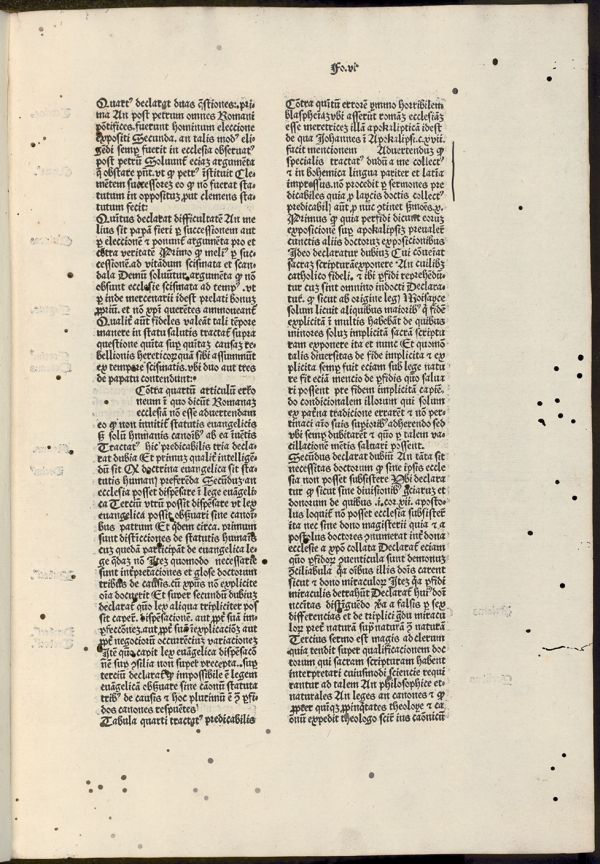 Fo.vi
Quart⁹ declarat duas q̄stiones: pri
ma An post petrum omnes Romani
pōtifices. fuerunt hominum eleccione
expositi Secunda. an talis mod⁹ eli
gēdi semp̱ fuerit in ecclesia obseruat⁹
post petrū Soluunt̄ eciaȝ argumēta
q̄ obstare pn̄t. vt ꝙ petr⁹ instituit Cle
mētem successoreȝ eo ꝙ nō fuerat sta
tutum in oppositūȝ put clemens sta
tutum fecit:
Quītus declarat difficultatē An me
lius sit papā fieri p̱ successionem aut
p̱ eleccionē ⁊ ponunt̄ argumēta pro et
cōtra veritatē Primo ꝙ meli⁹ p̱ suc
cessionē. ad vitādum scismata et scan
dala Demū soluūtur argumēta ꝙ nō
obsunt ecclesie scismata ad temp⁹. vt
p̱ inde mercenarii idest prelati bonuȝ
ꝓpriū. et nō xp̄i querētes ammoueant̄
Qualit̄ aūt fideles valeāt tali tēpore
manere in statu salutis tractat̄ supra
questione quita sup̱ quitaȝ causaȝ re
bellionis hereticorꝫ quā sibi assumūt
ex tempore scismatis. vbi duo aut tres
de papatu contendunt:
Cōtra quartū articulū erro
neum ī quo dicūt Romanaȝ
ecclesiā nō esse aduertendam
eo ꝙ non innitit̄ statutis euangelicis
sꝫ solū hūanis canoīb⁹ ab ea īuētis
Tractat⁹ hic predicabilis tria decla
rat dubia Et primuȝ qualit̄ intelligē
dū sit Ꝙ doctrina euangelica sit sta
tutis humanis preferēda Secūduȝ an
ecclesia posset dispēsare ī lege euāgeli
ca Terciū vtrū possit dispēsare vt lex
euangelica possit obseruari sine canoī
bus patrum Et q̄dem circa. primum
sunt distīcciones de statutis humanis
euangelica le
ge q̄daȝ nō Iteȝ quomodo necessarie
sunt int̄pretationes et glose doctorum
oīa docuerit Et super secundū dubiuȝ
declarat̄ quō lex aliqua tripliciter pos
sit capere dispensacionē. aut ꝓpt̄ suā im
ꝓpt̄ negociorū occurrēciuȝ variationeȝ
Itē quō capit lex euangelica dispēsacō
nē sup̱ cōsilia non super precepta.. sup̱
terciū declarat̄ ꝙ impossibile ē legem
euāgelicā obseruare sine canonū statuta
dos canones respuētes
Tabula quarti tractat⁹ predicabilis
Cōtra quītū errorē ymmo horribilem
blasphemiaȝ vbi asserūt romanā ecclesiaȝ
esse meretriceȝ illā apokalipticā idest
de qua Johannes ī Apokalip̄s. c. xvii.
facit mencionem Aduertenduȝ ꝙ
specialis tractat⁹ dudū a me collect⁹
⁊ in bohemica lingua pariter et latīa
impressus. nō procedit p̱ sermones pre
dicabiles quia p̱ laycis doctis collect⁹
predicabil̄ aūt p̱ nūc ↄtinet sermōes. x.
Primus ꝙ quia perfidi dicunt eorum
exposicionē sup̱ apokalip̄sȝ preualere
cunctis aliis doctoruȝ exposicionibus
Ideo declaratur dubiuȝ Cui cōueniat
sacraȝ scripturā exponere An cuilibȝ
catholico fideli. ⁊ ibi p̱fidi reprehēdū
tur cuȝ sint omnino indocti Declara
tur. ꝙ sicut ab origine leg̣ Moisayce
solum licuit aliquibus maiorib⁹ q̄ fidē
explicitā p̄ multis habebāt de quibus
minores soluȝ implicita sacrā scriptu
ram exponere ita et nunc Et quomō
talis diuersitas de fide implicita ⁊ ex
plicita semp̱ fuit eciam sub lege natu
re fit eciā mencio de p̱fidis quō salua
ri possent pre fidem implicitā capiē
do condicionalem illorum qui solum
ex patrna tradicione errarēt ⁊ nō per
tinaci aīo suis superiorib⁹ adherendo sed
vbi semp̱ dubitarēt ⁊ quo p̱ talem va
cillacionē mētis saluari possent.
Secūdus declarat dubiū An tāta sit
necessitas doctorum ꝙ sine ip̄sis eccle
sia non posset subsistere Vbi declara
tur ꝙ sicut sine diuisionib⁹ graciaruȝ et
donorum de quibus. i. cor. xii. aposto
lus loquit̄ nō posset ecclesia subsistere
ita nec sine dono magisterii quia ⁊ a
postolus doctores ↄnumerat int̄ dona
ecclesie a xp̄o collata Declarat̄ eciam
quō p̱fidorꝫ ↄuenticula sunt demonuȝ
ↄciliabula q̄a oībus illis donis carent
sicut ⁊ dono miraculorꝫ Iteȝ q̄a p̱fidi
miraculis detrahūt Declarat̄ hui⁹ doni
necitas distīguēdo v̄a a falsis p̱ sex
differencias et de triplici gradu miracu
lorꝫ pret̄ naturā supra naturā ⁊ ↄ̄ naturā
Tercius sermo est magis ad clerum
quia tendit super qualificacionem doc
torum qui sacram scripturam habent
interpretari cuiusmodi sciencie requi
rantur ad talem An philosophice et
naturales An leges an canones ⁊ ꝙ
propter quicquid ꝓpinq̄tates theoloye ⁊ ca
onū expedit theologo scire ius canōicū